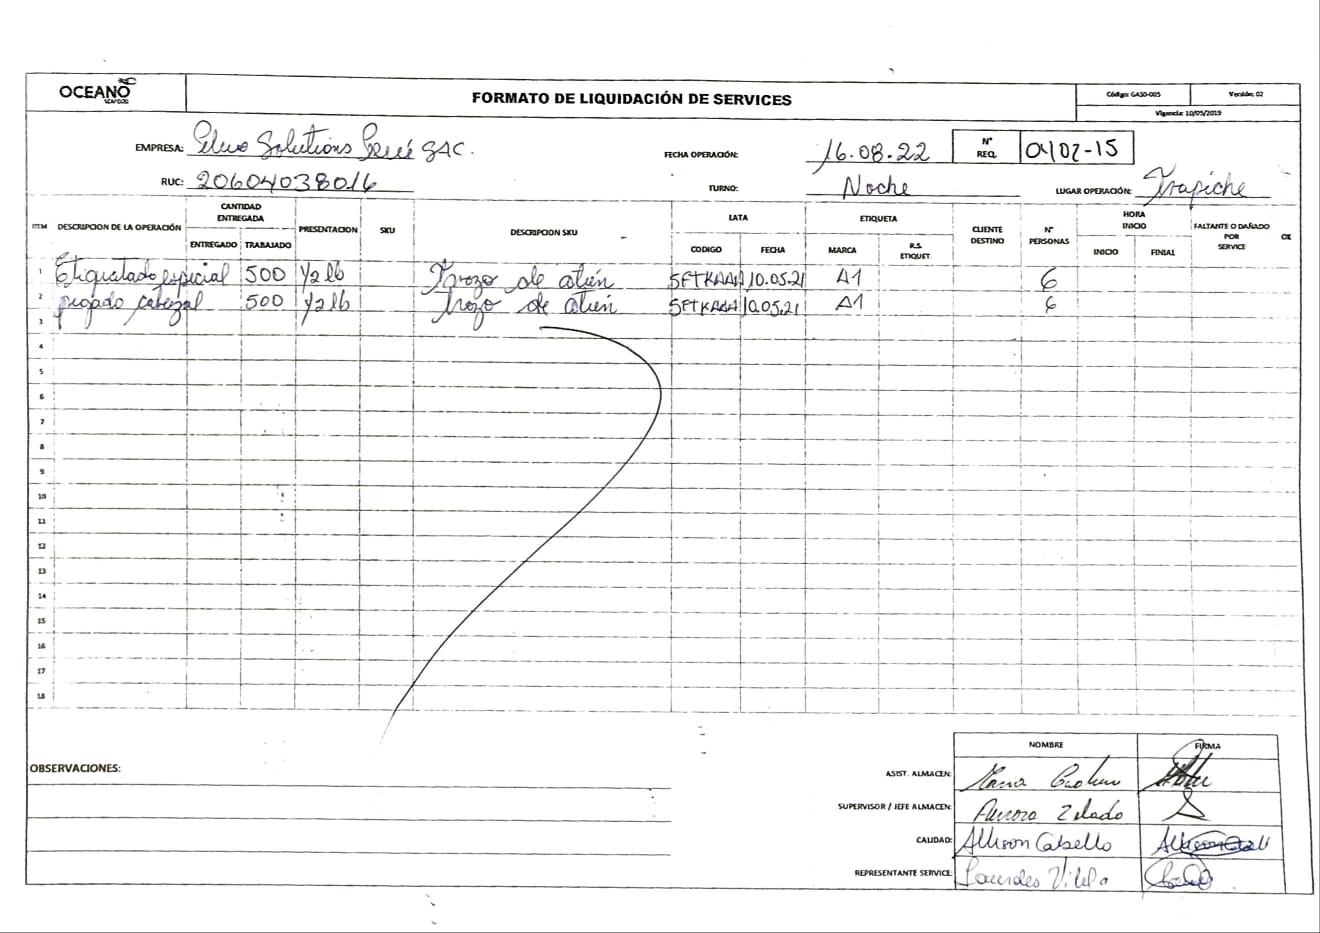 OCEANO
SEAFOOD
FORMATO DE LIQUIDACIÓN DE SERVICES
Código: GASO-005
Versión: 02
Vigencia: 10/05/2019
EMPRESA: Solutions Perú SAC.
FECHA OPERACIÓN: 16.08.22
N° REQ. 0402-15
RUC: 20604038016
TURNO: Noche
LUGAR OPERACIÓN: Trapiche
ITEM DESCRIPCION DE LA OPERACIÓN CANTIDAD ENTREGADA PRESENTACION SKU DESCRIPCION SKU LATA ETIQUETA CLIENTE DESTINO N° PERSONAS HORA INICIO FALTANTE O DAÑADO POR SERVICE OK
ENTREGADO TRABAJADO CODIGO FECHA MARCA R.S. ETIQUET. INICIO FINIAL
1 Etiquetado especial 500 1/2 lb Trozo de atún 10.05.21 A1 6
2 pegado cabezal 500 1/2 lb Trozo de atún 10.05.21 A1 6
3
4
5
6
7
8
9
10
11
12
13
14
15
16
17
18
OBSERVACIONES:
NOMBRE FIRMA
ASIST. ALMACEN:
SUPERVISOR / JEFE ALMACEN: Aurora Zelado
CALIDAD: Allison Cabello
REPRESENTANTE SERVICE: Lourdes Vilela